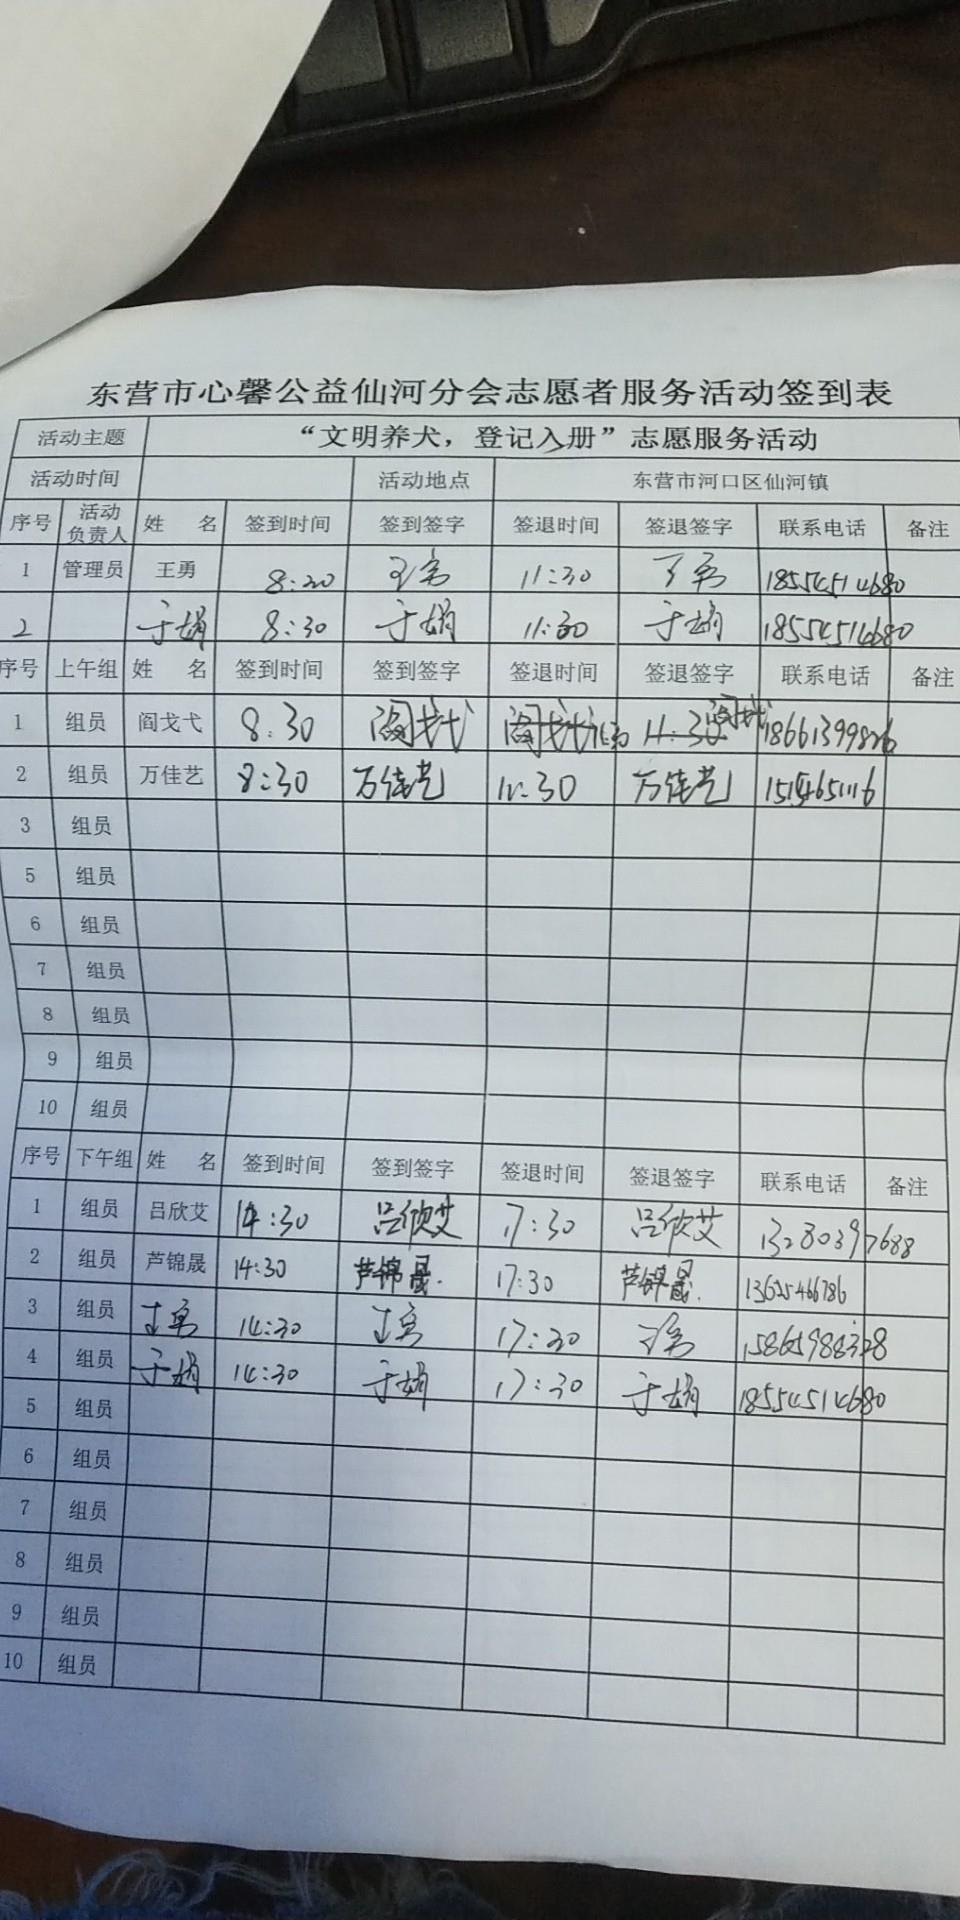 东营市心馨公益仙河分会志愿者服务活动签到表
活动主题 “文明养犬，登记入册”志愿服务活动
活动时间 活动地点 东营市河口区仙河镇
序号 活动负责人 姓 名 签到时间 签到签字 签退时间 签退签字 联系电话 备注
1 管理员 王勇 8:30 王勇 11:30 王勇 18554514680
2 于娟 8:30 于娟 11:30 于娟 18554514680
序号 上午组 姓 名 签到时间 签到签字 签退时间 签退签字 联系电话 备注
1 组员 阎戈弋 8:30 阎戈弋 阎戈弋 11:30 阎戈弋
2 组员 万佳艺 8:30 万佳艺 11:30 万佳艺
3 组员
5 组员
6 组员
7 组员
8 组员
9 组员
10 组员
序号 下午组 姓 名 签到时间 签到签字 签退时间 签退签字 联系电话 备注
1 组员 吕欣艾 14:30 吕欣艾 17:30 吕欣艾 13280397688
2 组员 芦锦晟 14:30 芦锦晟 17:30 芦锦晟 13625466786
3 组员 王勇 14:30 王勇 17:30 王勇
4 组员 于娟 14:30 于娟 17:30 于娟 18554514680
5 组员
6 组员
7 组员
8 组员
9 组员
10 组员